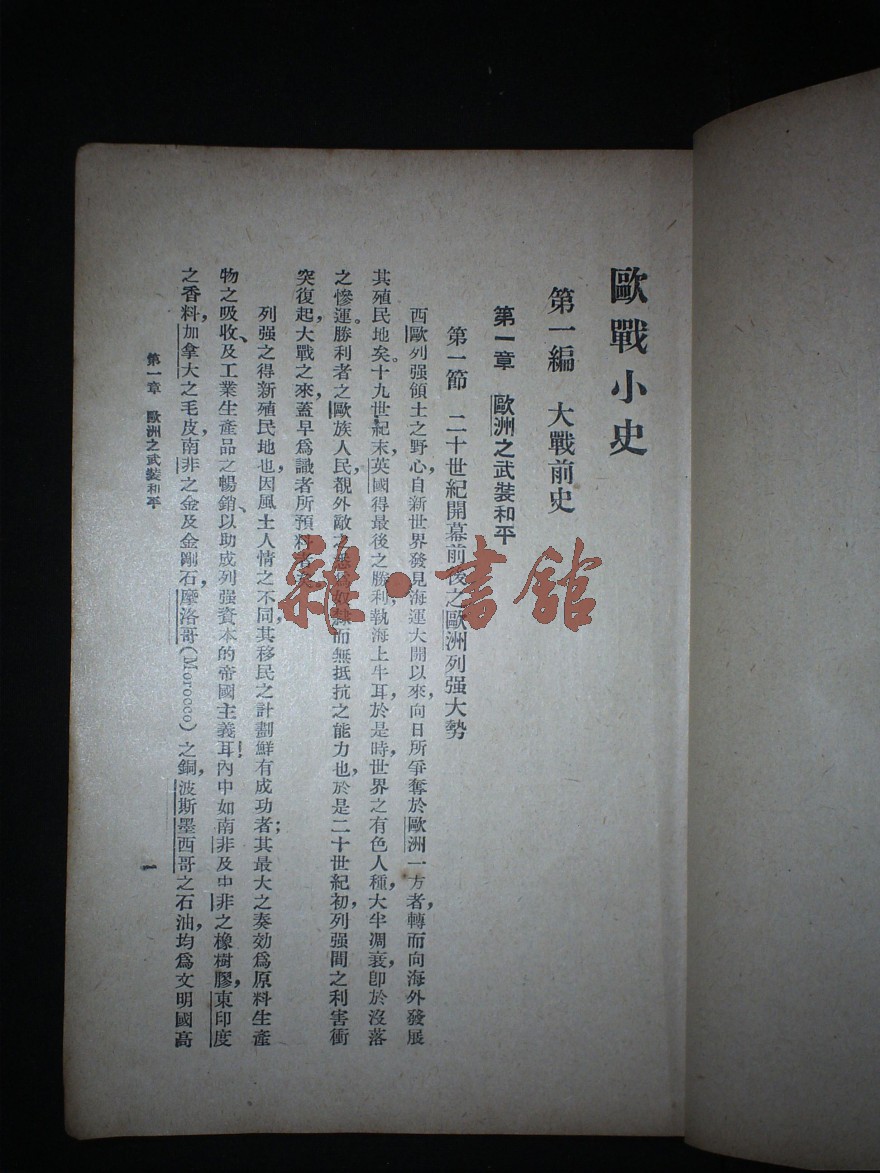 歐戰小史
第一編 大戰前史
第一章 歐洲之武裝和平
第一節 二十世紀開幕前後之歐洲列强大勢
西歐列强領土之野心,自新世界發見海運大開以來,向日所爭奪於歐洲一方者,轉而向海外發展
其殖民地矣。十九世紀末,英國得最後之勝利,執海上牛耳,於是時,世界之有色人種,大半凋衰,卽於沒落
之慘運。勝利者之歐族人民,覩外敵之 奴隸而無抵抗之能力也,於是二十世紀初,列强間之利害衝
突復起,大戰之來,蓋早爲識者所預料
列强之得新殖民地也,因風土人情之不同,其移民之計劃鮮有成功者;其最大之奏効爲原料生產
物之吸收、及工業生產品之暢銷、以助成列强資本的帝國主義耳!內中如南非及中非之橡樹膠,東印度
之香料,加拿大之毛皮,南非之金及金剛石,摩洛哥(Morocco)之銅,波斯墨西哥之石油,均爲文明國高
第一章 歐洲之武裝和平
一
雜·書館